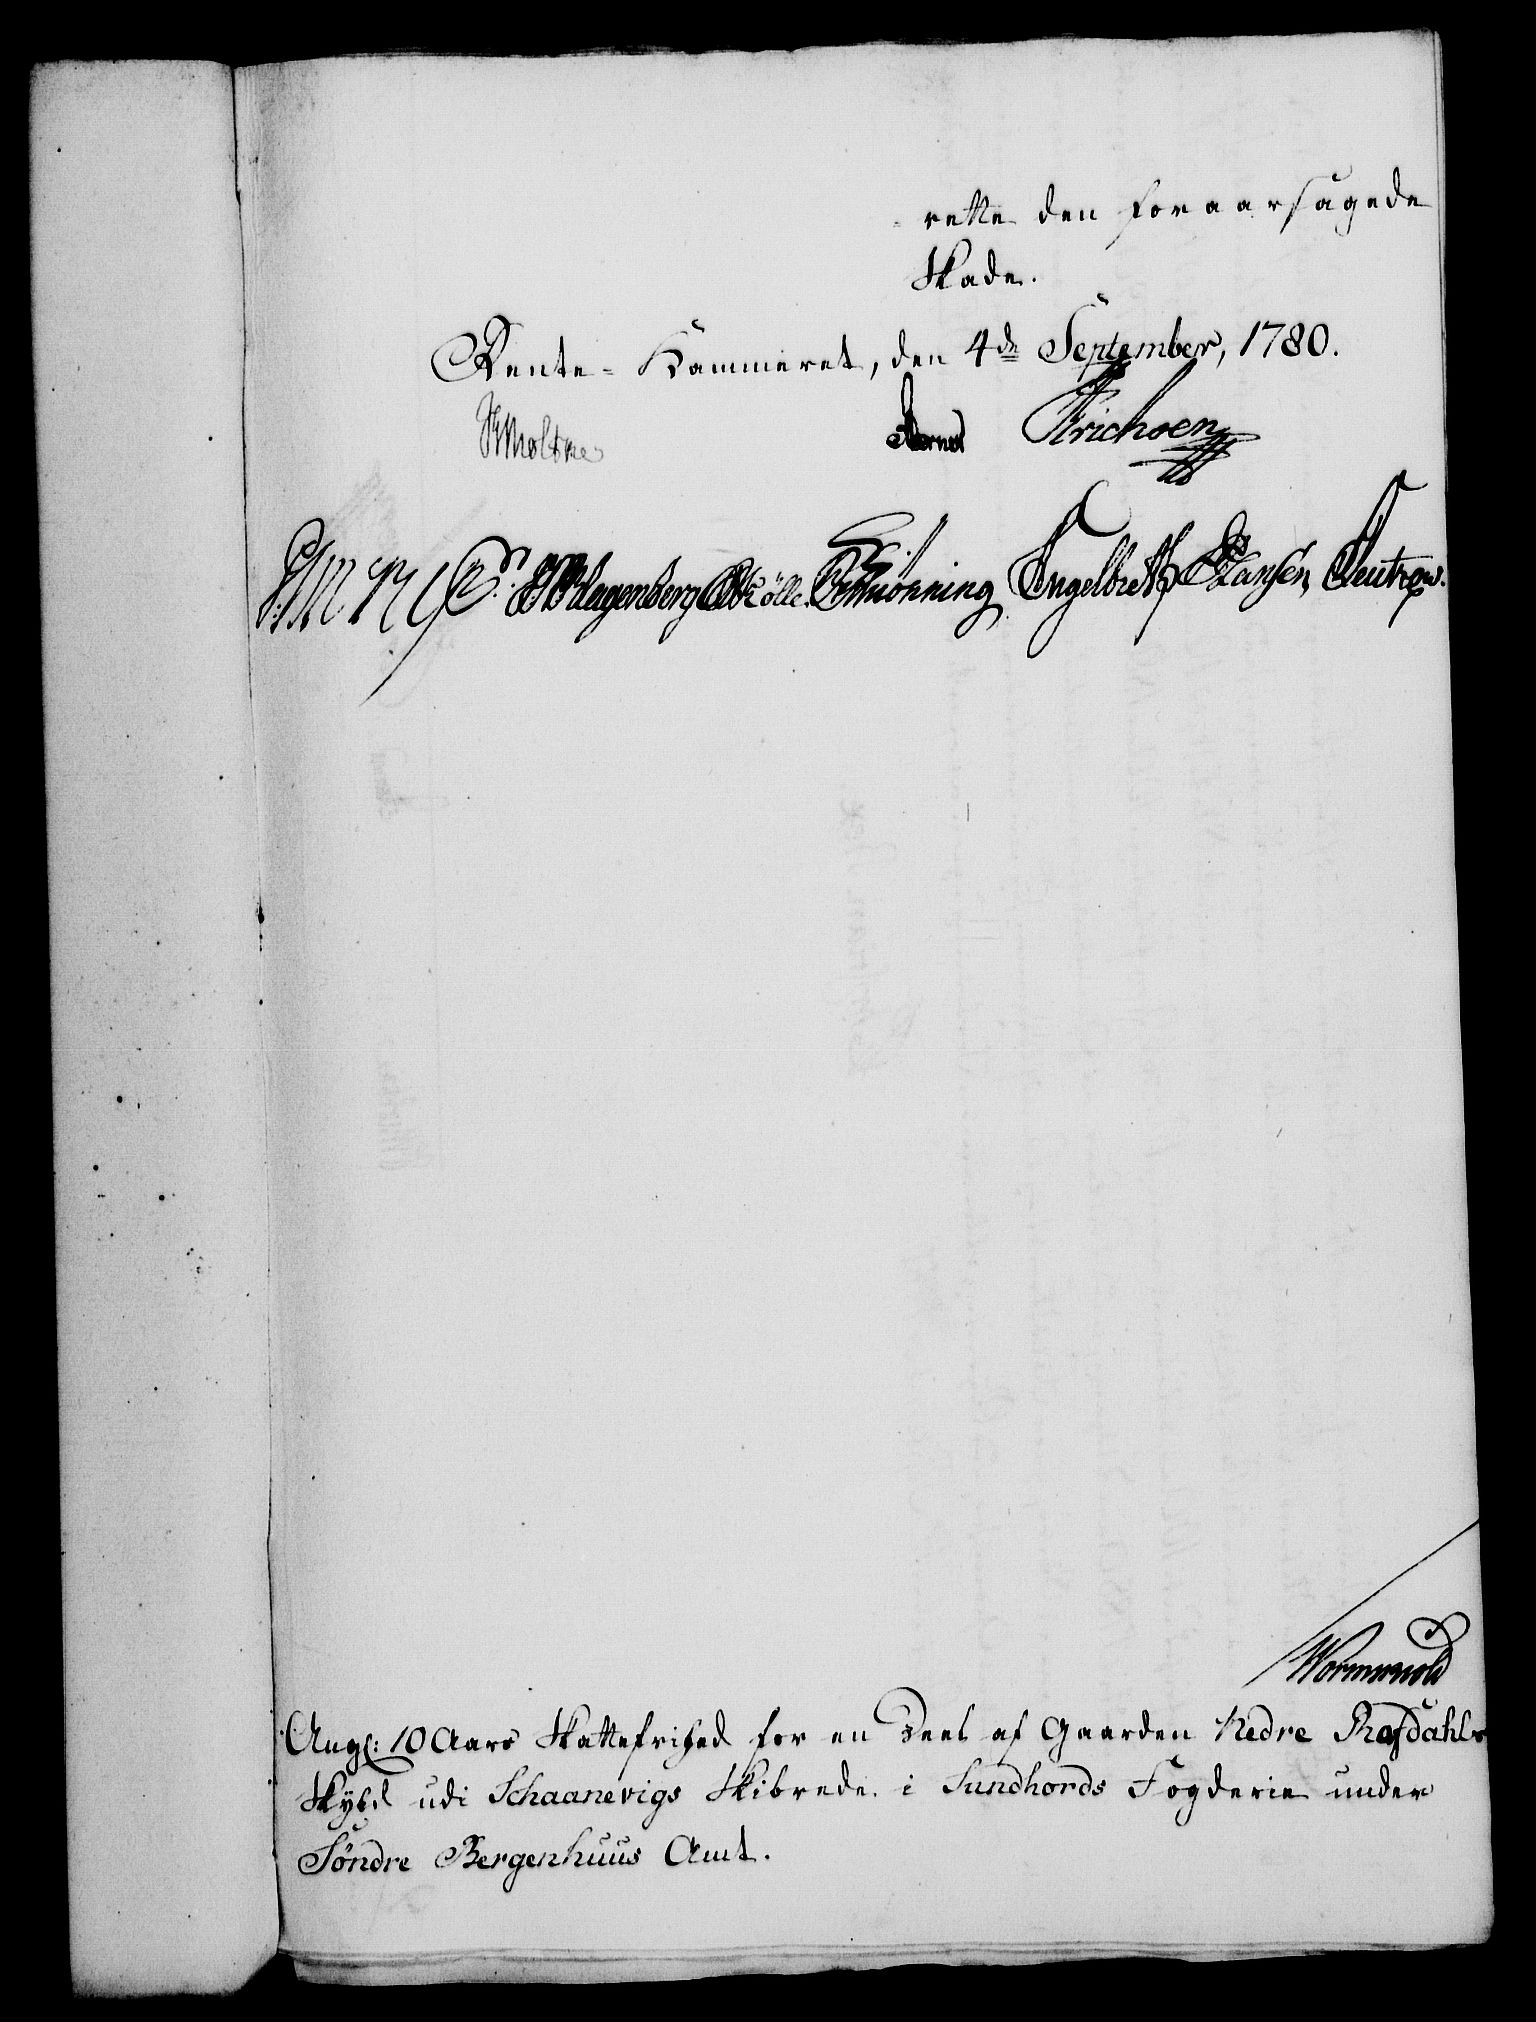 - rette den foraarsagede
Skade.
Rente-Kammeret, den 4de September, 1780.
Moltke Erichsen
Hagenberg Schiønning Engelbreth Hansen
Wormskiold
Angl: 10 Aars Skattefrihed for en Deel af Gaarden Nedre Rafdahls
Skyld udi Schaanevigs Skibrede i Sundhords Fogderie under
Søndre Bergenhuus Amt.